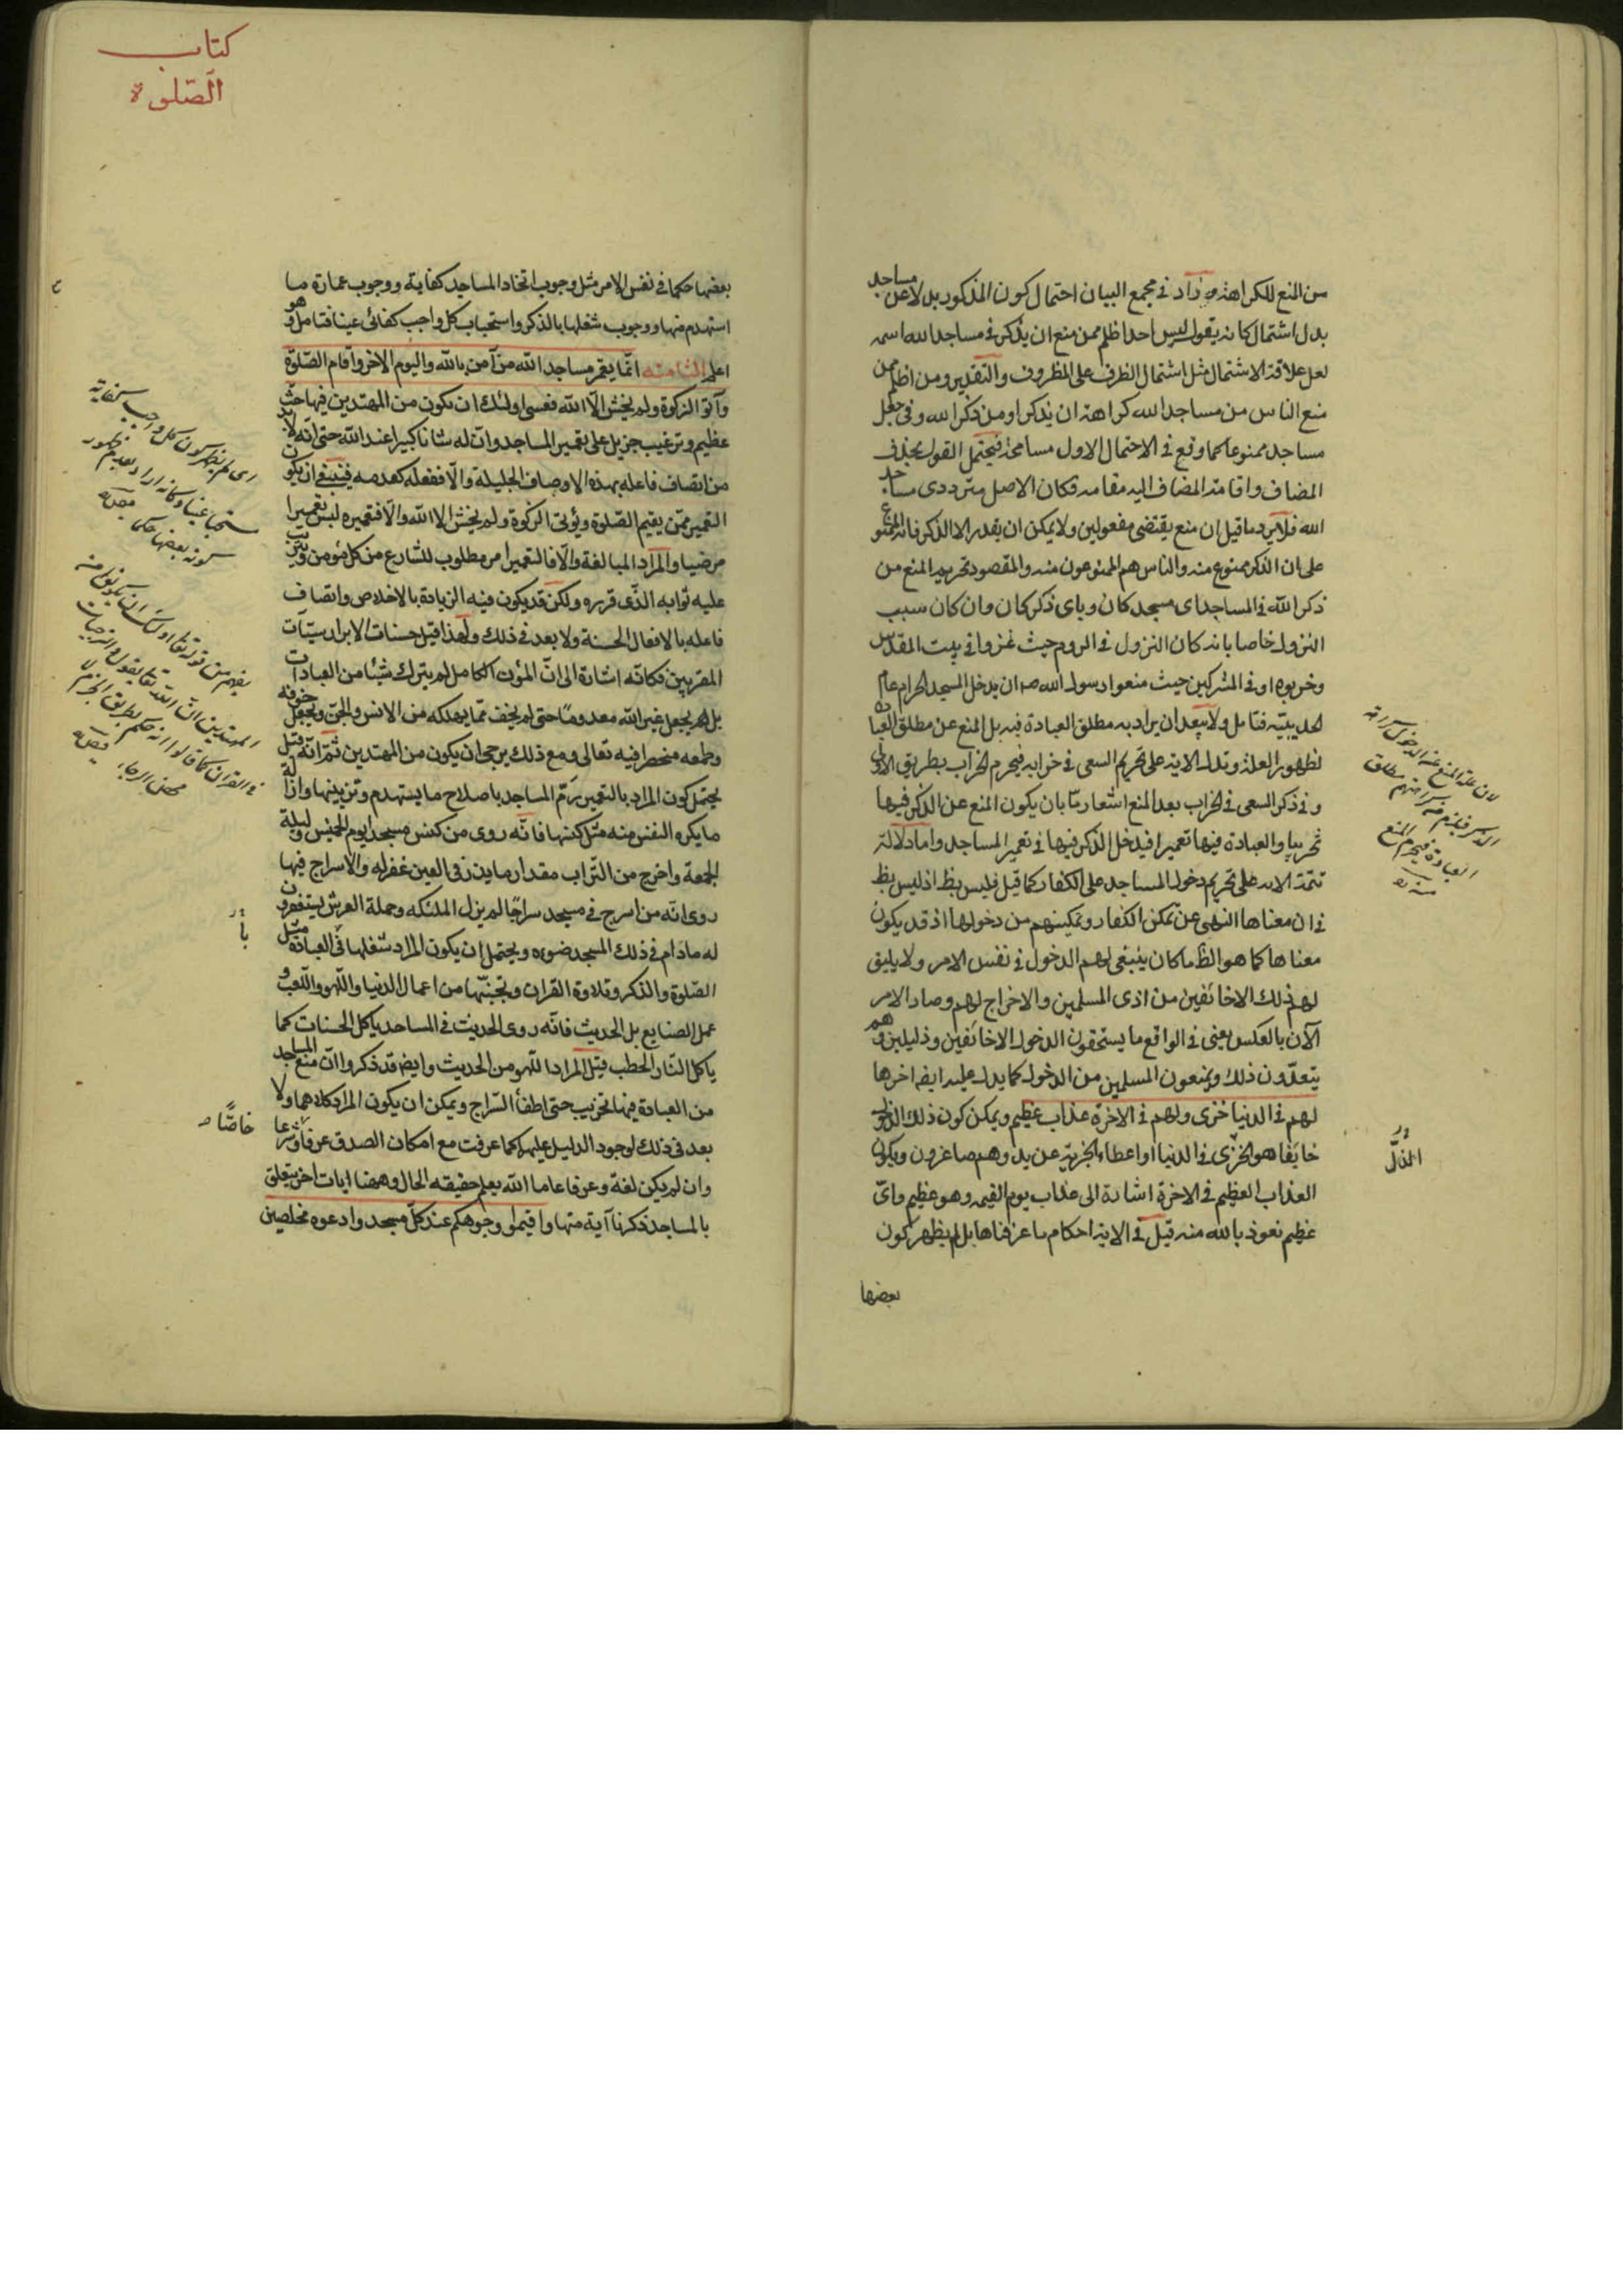 من المنع للكراهة وزاد في مجمع البيان احتمال كون المذكور بدلا عن مساجد
بدل اشتمال كانه يقول ليس احد اظلم ممن منع ان يذكر في مساجد الله اسمه
لعل علاقة الاشتمال مثل اشتمال الظرف على المظروف والتقدير ومن اظلم ممن
منع الناس من مساجد الله كراهة ان يذكر او من ذكر الله وفي جعل
مساجد ممنوعا كما وقع في الاحتمال الاول مسامحة فيحتمل القول بحذف
المضاف واقامة المضاف اليه مقامه فكان الاصل مترددى مساجد
الله فلا يرد ما قيل ان منع يقتضى مفعولين ولا يمكن ان يقدر الا الذكر فانه الممنوع
على ان الذكر ممنوع منه والناس هم الممنوعون منه والمقصود تحريم المنع من
ذكر الله في المساجد اى مسجد كان وباى ذكر كان وان كان سبب
النزول خاصا بانه كان النزول في الروم حيث غزوا في بيت المقدس
وخربوه او في المشركين حيث منعوا رسول الله ص ان يدخل المسجد الحرام عام
الحديبية فتامل ولا يبعد ان يراد به مطلق العبادة فيه بل المنع عن مطلق العبادة
لظهور العلة وتدل الاية على تحريم السعى في خرابه فيحرم الخراب بطريق الاولى
وفي ذكر السعى في الخراب بعد المنع اشعار ما بان يكون المنع عن الذكر فيها
تخريبا والعبادة فيها تعميرا فيدخل الذكر فيها في تعمير المساجد واما دلالة
تتمة الاية على تحريم دخول المساجد على الكفار كما قيل فليس بظ اذ ليس بظ
في ان معناها النهى عن تمكن الكفار وتمكينهم من دخولها اذ قد يكون
معناها كما هو الظ ما كان ينبغى لهم الدخول في نفس الامر ولا يليق
لهم ذلك الا خائفين من اذى المسلمين والاخراج لهم وصار الامر
الآن بالعكس يعنى في الواقع ما يستحقون الدخول الا خائفين وذليلين وهم
يتعدون ذلك ويمنعون المسلمين من الدخول كما يدل عليه ايضا اخرها
لهم في الدنيا خزى ولهم في الاخرة عذاب عظيم ويمكن كون ذلك الدخول
خايفا هو الخزى في الدنيا او اعطاء الجزية عن يد وهم صاغرون ويكون
العذاب العظيم في الاخرة اشارة الى عذاب يوم القيمة وهو عظيم واى
عظيم نعوذ بالله منه قيل في الاية احكام ما عرفناها بل لم يظهر كون
بعضها
لان علة المنع عنه
الذكر فيلزم منه
العبادة فيحرم المنع
منه ره
كتاب
الصّلوة
بعضها حكما في نفس الامر مثل وجوب اتخاذ المساجد كفاية ووجوب عمارة ما
استهدم منها ووجوب شغلها بالذكر واستحباب كل واجب كفائى عينا فتامل وهو
اعلم الثامنة انّما يعمر مساجد الله من آمن بالله واليوم الاخر واقام الصّلوة
وآتى الزكوة ولم يخش الّا الله فعسى اولئك ان يكون من المهتدين فيها حثّ
عظيم وترغيب جزيل على تعمير المساجد وانّ له شانا كبيرا عند الله حتى انّه لا بد
من اتصاف فاعله بهذه الاوصاف الجليلة والّا ففعله كعدمه فينبغى ان يكون
التعمير ممّن يقيم الصّلوة ويؤتى الزكوة ولم يخش الا الله والّا فتعميره ليس تعميرا
مرضيا والمراد المبالغة والّا فالتعمير امر مطلوب للشارع من كل مؤمن ويترتب
عليه ثوابه الذى قرره ولكن قد يكون فيه الزيادة بالاخلاص واتصاف
فاعله بالافعال الحسنة ولا بعد في ذلك ولهذا قيل حسنات الابرار سيّآت
المقربين فكانّه اشارة الى انّ المؤمن الكامل لم يترك شيئا من العبادات
بل لم يجعل غير الله معدوما حتى لم يخف ممّا يهلكه من الانس والجن ويجعل خوفه
وطمعه منحصرا فيه تعالى ومع ذلك يرجى ان يكون من المهتدين ثمّ انّه قيل
يحتمل كون المراد بالتعمير رمّ المساجد باصلاح ما يستهدم وتزيينها وازالة
ما يكره النفس منه مثل كنسها فانّه روى من كنس مسجدا يوم الخميس وليلة
الجمعة واخرج من التّراب مقدار ما يذرّ في العين غفر له والاسراج فيها
روى انّه من اسرج في مسجد سراجا لم يزل الملئكة وحملة العرش يستغفرون
له ما دام في ذلك المسجد ضوءه ويحتمل ان يكون المراد شغلها في العبادة مثل
الصّلوة والذكر وتلاوة القران وتجنّبها من اعمال الدنيا واللّهو واللّعب و
عمل الصنايع بل الحديث فانّه روى الحديث في المساجد ياكل الحسنات كما
ياكل النّار الحطب قيل المراد اللّهو من الحديث وايضا قد ذكروا انّ منع المساجد
من العبادة فيها تخريب حتى اطفأ السّراج ويمكن ان يكون المراد كلاهما ولا
بعد في ذلك لوجود الدليل عليهما كما عرفت مع امكان الصدق عرفا وشرعا
وان لم يكن لغة وعرفا عاما الله يعلم حقيقه الحال وههنا ايات اخر يتعلق
بالمساجد ذكرنا آية منها واقيموا وجوهكم عند كلّ مسجد وادعوه مخلصين
خاصًّا